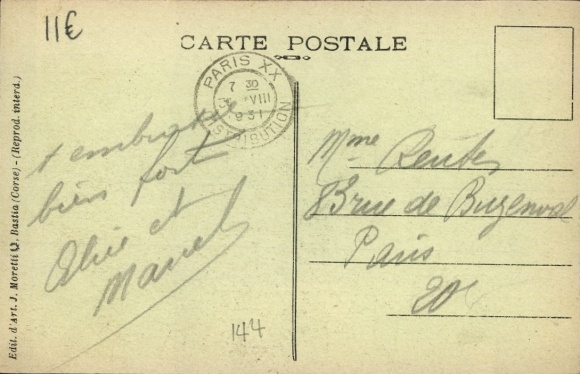 11€
CARTE POSTALE
PARIS XX
7 30
VIII
931
DISTRIBUTION
t'embrasse
bien fort
Alice et
Marcel
144
Mme
83 rue de Buzenval
Paris
20e
Edit. d'Art. J. Moretti Bastia (Corse) - (Reprod. interd.)